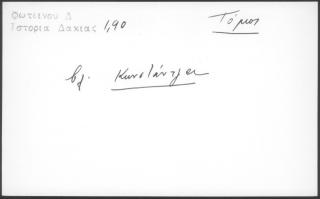 Φωτεινού Δ
Ἱστορία Δακίας 1,90
Τόμοι
βλ. Κωνστάντζα